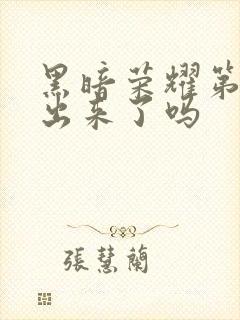 黑暗荣耀第
出来了吗
張慧蘭